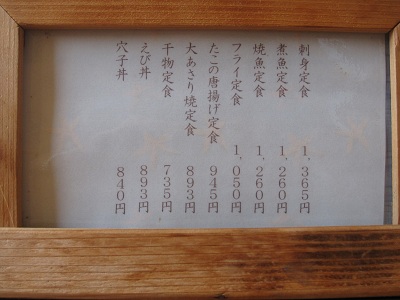 刺身定食 1,365円
煮魚定食 1,260円
焼魚定食 1,260円
フライ定食 1,050円
たこの唐揚げ定食 945円
大あさり焼定食 893円
干物定食 735円
えび丼 893円
穴子丼 840円